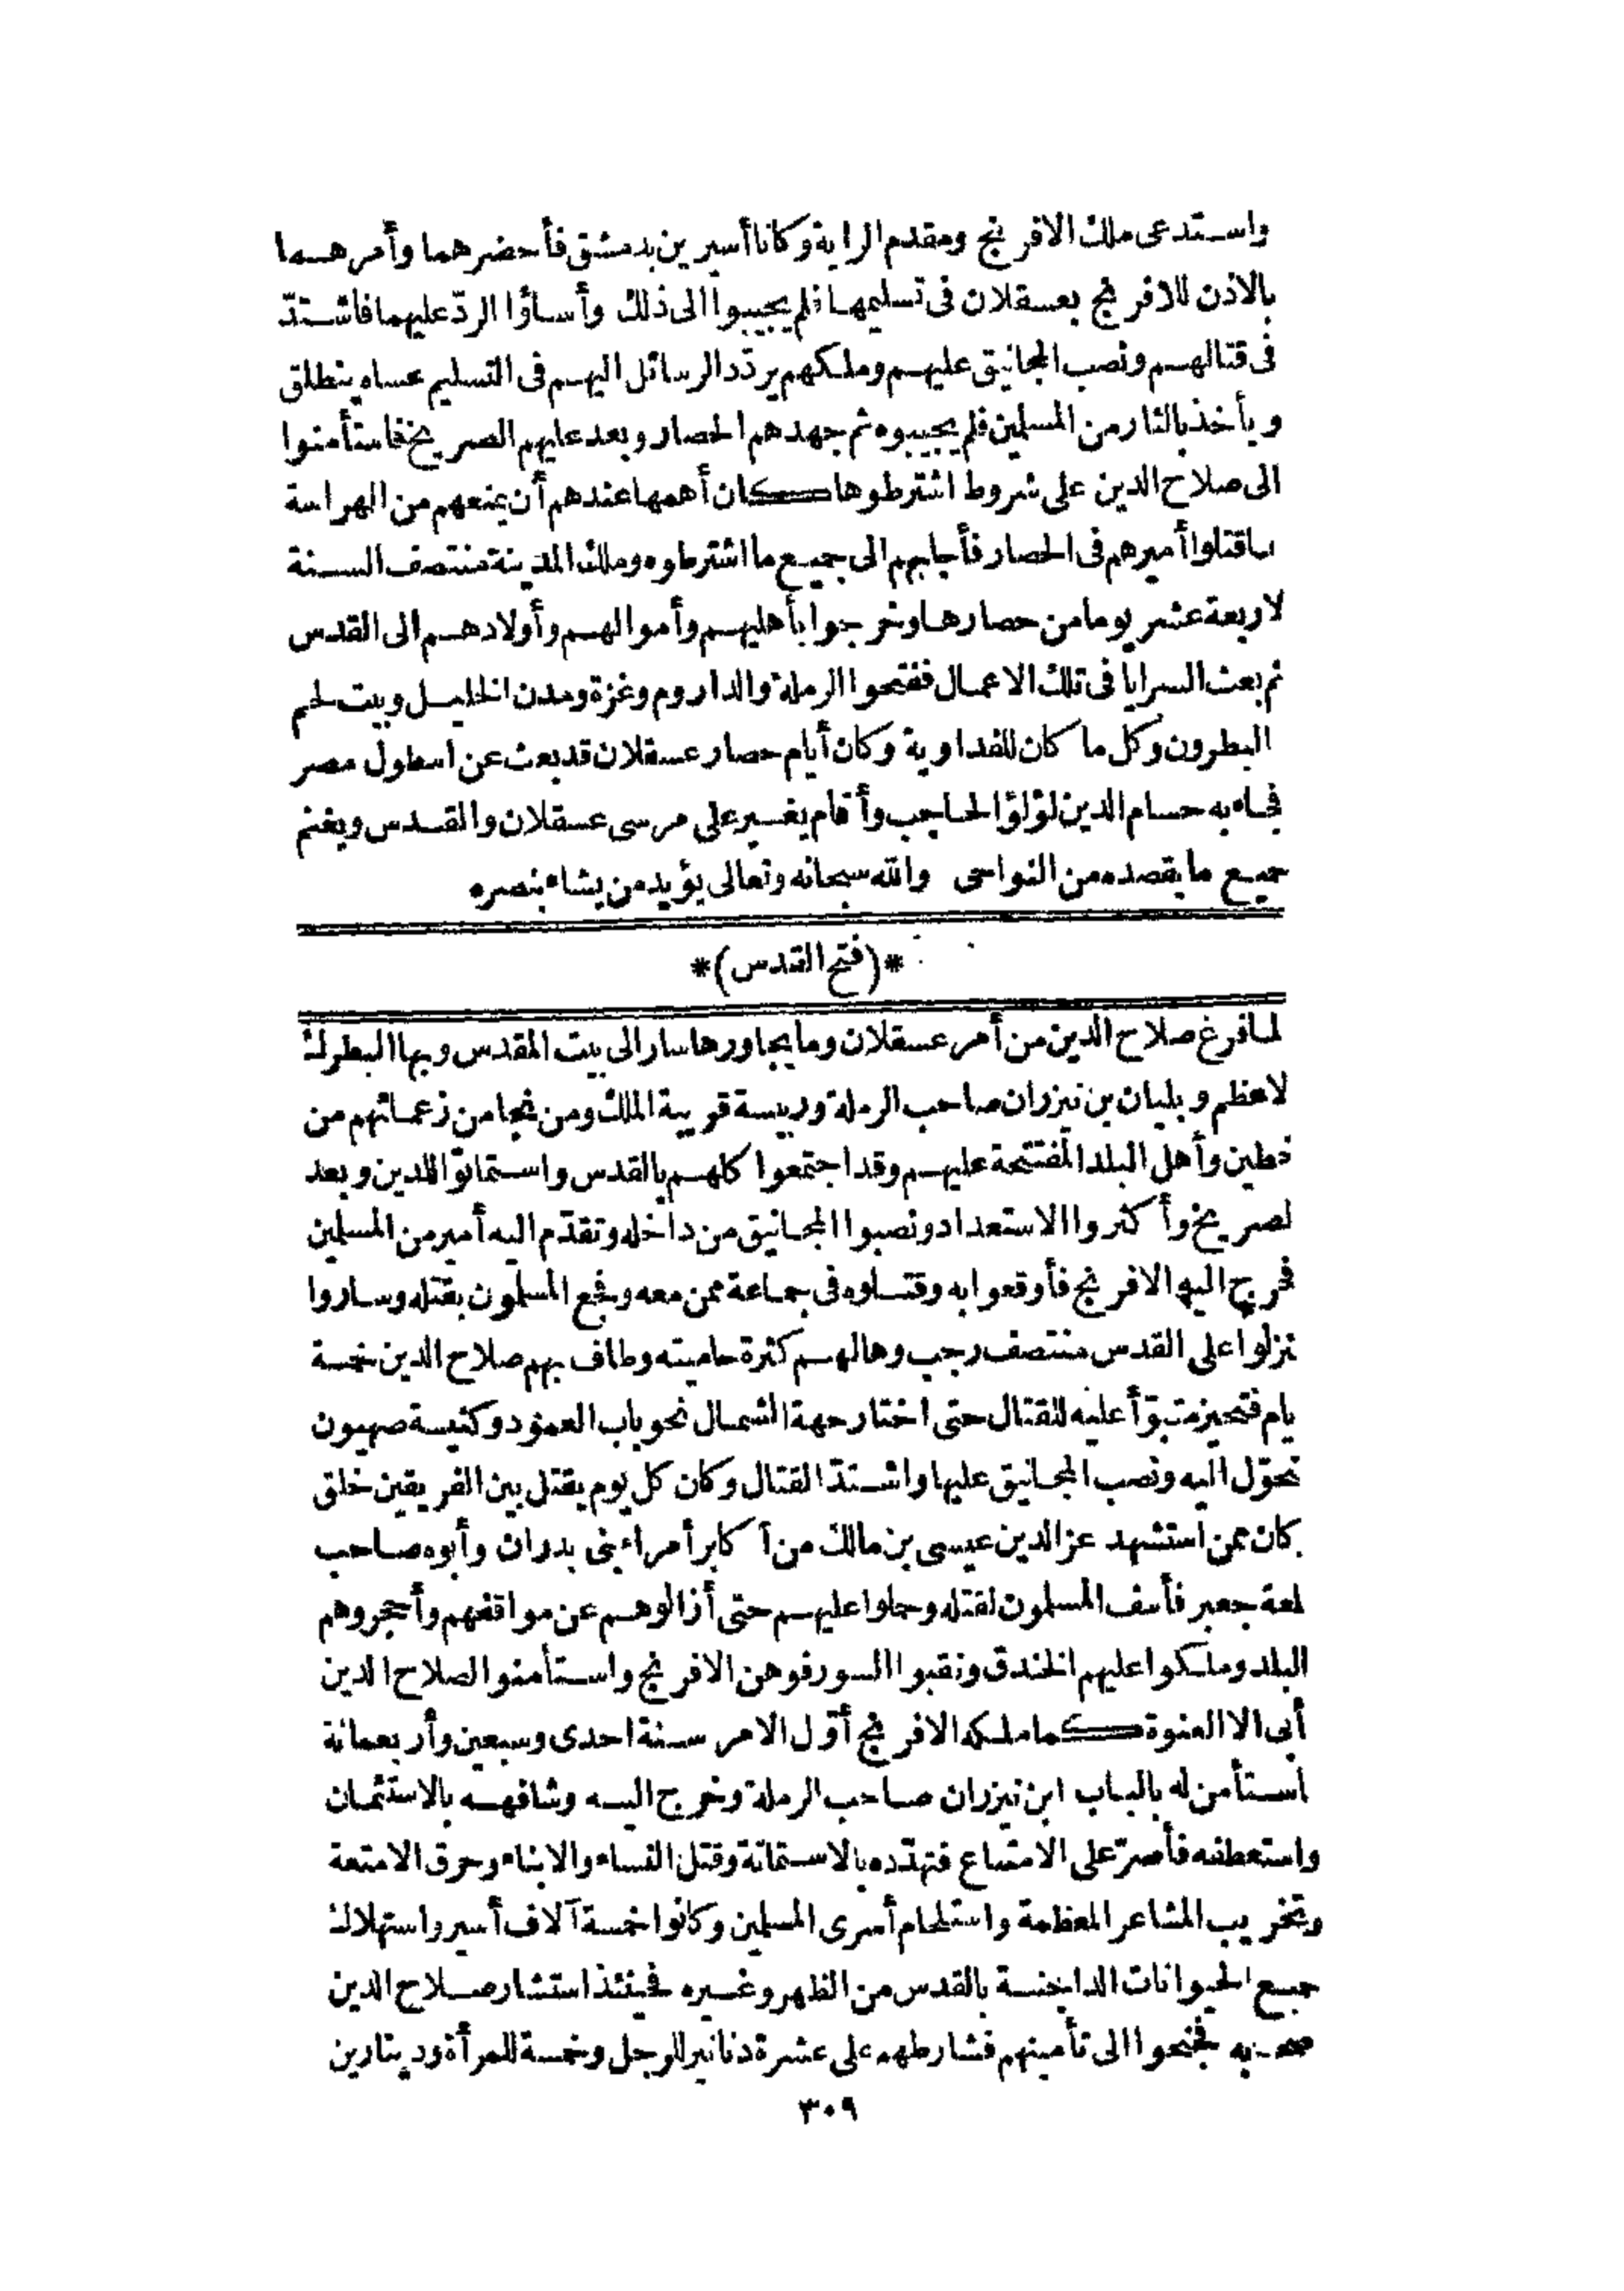 واستدعى ملك الافرنج ومقدم الراية وكانا أسيرين بدمشق فأحضرهما وأمرهما
بالاذن للافرنج بعسقلان فى تسليمها فلم يجيبوا الى ذلك وأساؤا الردّ عليهما فاشتدّ
فى قتالهم ونصب المجانيق عليهم وملكهم يردّد الرسائل اليهم فى التسليم عساه ينطلق
ويأخذ بالثار من المسلمين فلم يجيبوه ثم جهدهم الحصار وبعد عليهم الصريخ فاستأمنوا
الى صلاح الدين على شروط اشترطوها كان أهمها عندهم أن يمنعهم من الهراسة
لما قتلوا أميرهم فى الحصار فأجابهم الى جميع ما اشترطوه وملك المدينة منتصف السنة
لاربعة عشر يوما من حصارها وخرجوا بأهليهم وأموالهم وأولادهم الى القدس
ثم بعث السرايا فى تلك الاعمال ففتحوا الرملة والداروم وغزة ومدن الخليل وبيت لحم
البطرون وكل ما كان للفداوية وكان أيام حصار عسقلان قد بعث عن اسطول مصر
فجاء به حسام الدين لؤلؤ الحاجب وأقام يغير على مرسى عسقلان والقدس ويغنم
جميع ما يقصده من النواحى والله سبحانه وتعالى يؤيد من يشاء بنصره
*(فتح القدس)*
لما فرغ صلاح الدين من أمر عسقلان وما يجاورها سار الى بيت المقدس وبها البطرك
لاعظم وبليان بن نيزران صاحب الرملة وربيسة قريبة الملك ومن نجا من زعمائهم من
حطين وأهل البلد المفتتحة عليهم وقد اجتمعوا كلهم بالقدس واستماتوا للدين وبعد
لصريخ وأكثروا الاستعداد ونصبوا المجانيق من داخله وتقدّم اليه أمير من المسلمين
فخرج اليه الافرنج فأوقعوا به وقتلوه فى جماعة ممن معه وفجع المسلمون بقتله وساروا
نزلوا على القدس منتصف رجب وهالهم كثرة حاميته وطاف بهم صلاح الدين خمسة
يام فتحيز متبوّأ عليه للقتال حتى اختار جهة الشمال نحو باب العمود وكنيسة صهيون
تحوّل اليه ونصب المجانيق عليها واشتدّ القتال وكان كل يوم يقتل بين الفريقين خلق
كان ممن استشهد عز الدين عيسى بن مالك من أكابر أمراء بنى بدران وأبوه صاحب
لعة جعبر فأسف المسلمون لقتله وحملوا عليهم حتى أزالوهم عن مواقفهم وأجحروهم
البلد وملكوا عليهم الخندق ونقبوا السور فوهن الافرنج واستأمنوا لصلاح الدين
أبى الا العنوة كما ملكه الافرنج أوّل الامر سنة احدى وسبعين وأربعمائة
استأمن له بالباب ابن نيزران صاحب الرملة وخرج اليه وشافهه بالاستئمان
واستعطفه فأصرّ على الامتناع فتهدّده بالاستماتة وقتل النساء والابناء وحرق الامتعة
وتخريب المشاعر المعظمة واستلحام أسرى المسلمين وكانوا خمسة آلاف أسير واستهلاك
جميع الحيوانات الداجنة بالقدس من الظهر وغيره فحينئذ استشار صلاح الدين
صحبه فجنحوا الى تأمينهم فشارطهم على عشرة دنانير للرجل وخمسة للمرأة ودينارين
٣٠٩